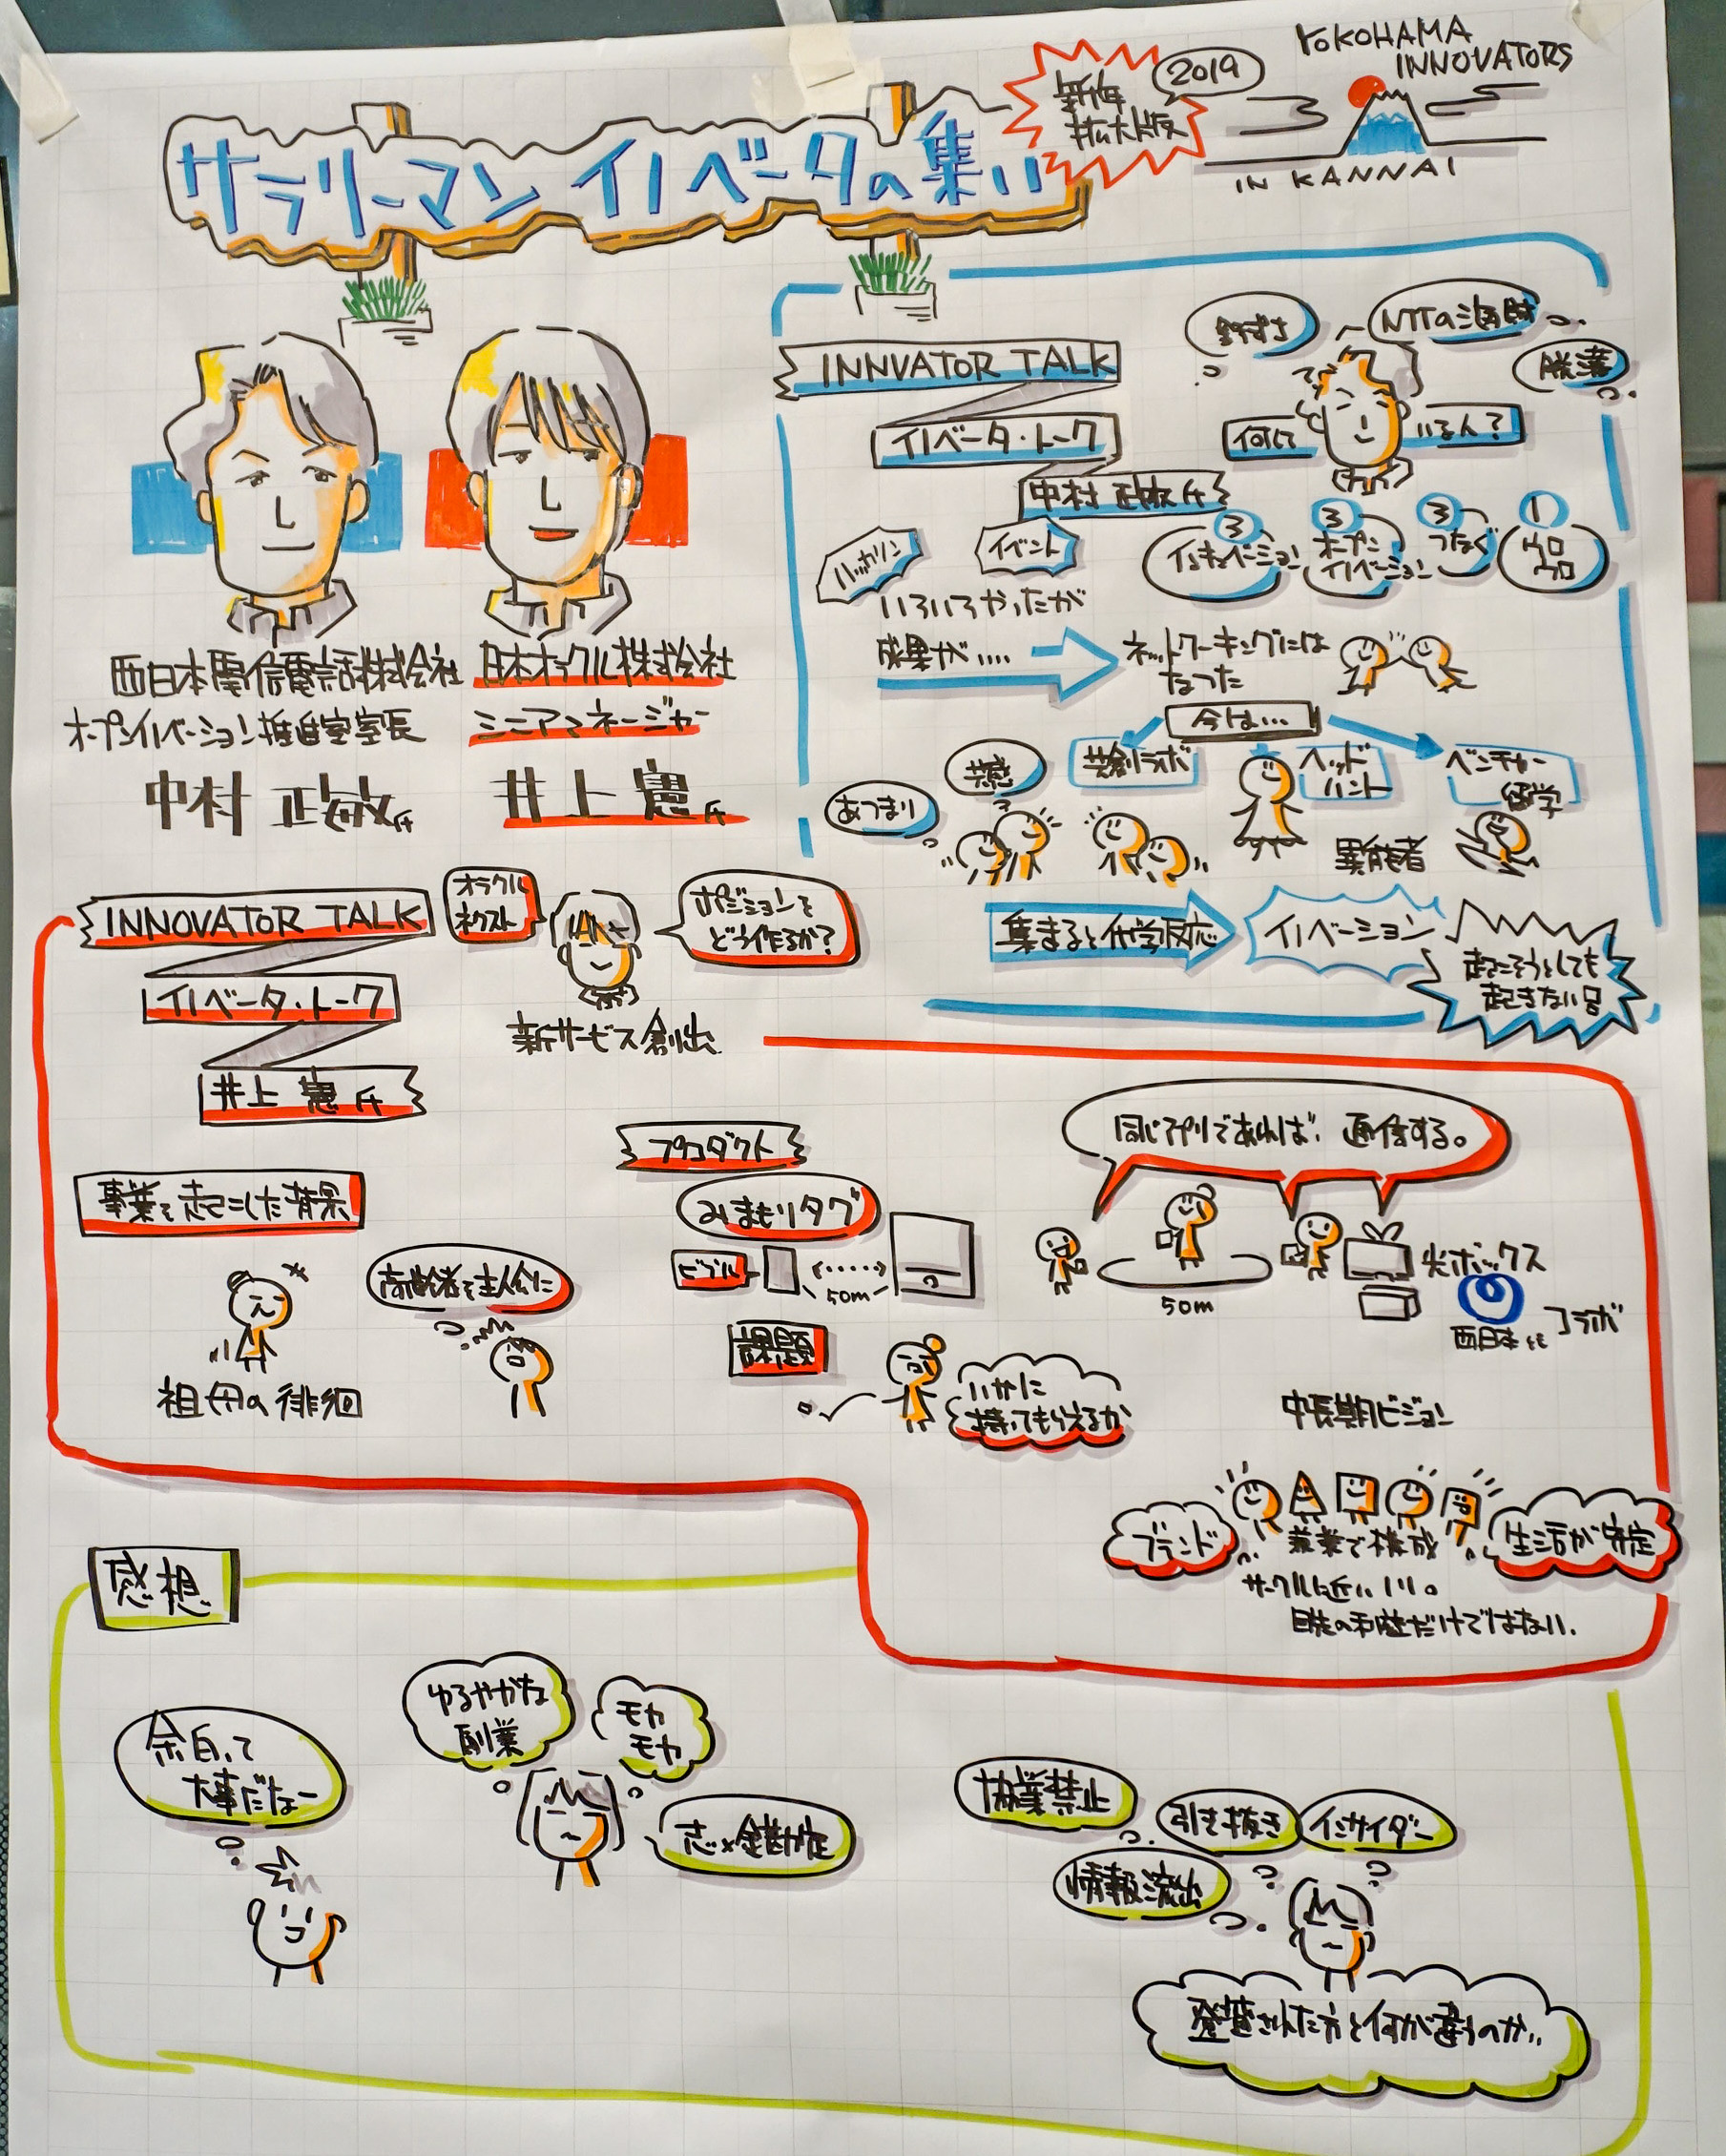 サラリーマン イノベータの集い
新年
拡大版
2019
YOKOHAMA
INNOVATORS
IN KANNAI
西日本電信電話株式会社
オープンイノベーション推進室室長
中村 正敏氏
日本オラクル株式会社
シニアマネージャー
井上 憲氏
INNVATOR TALK
イノベータ・トーク
中村 正敏氏
NTTの海賊
何して
いる人?
ハッカソン
イベント
3
インキュベーション
3
オープン
イノベーション
3
つなぐ
1
ウロ
ウロ
いろいろやったが
成果が....
ネットワーキングには
なった
今は...
あつまり
共感
共創ラボ
ヘッド
ハント
ベンチャー
留学
異能者
集まると化学反応
イノベーション
起こそうとしても
起きない。
INNOVATOR TALK
イノベータ・トーク
井上 憲氏
オラクル
ネクスト
ポジションを
どう作るか?
新サービス創出
事業を起こした背景
祖母の徘徊
高齢者を主人公に
プロダクト
みまもりタグ
50m
課題
いかに
持ってもらえるか
同じアプリであれば、通信する。
50m
光ボックス
西日本
コラボ
中長期ビジョン
ブランド
兼業で構成
生活が安定
サークルに近い。
目先の利益だけではない。
感想
余白って
大事だなー
ゆるやかな
副業
モヤ
モヤ
志×金勘定
協業禁止
引き抜き
インサイダー
情報流出
登壇された方と何が違うのか..